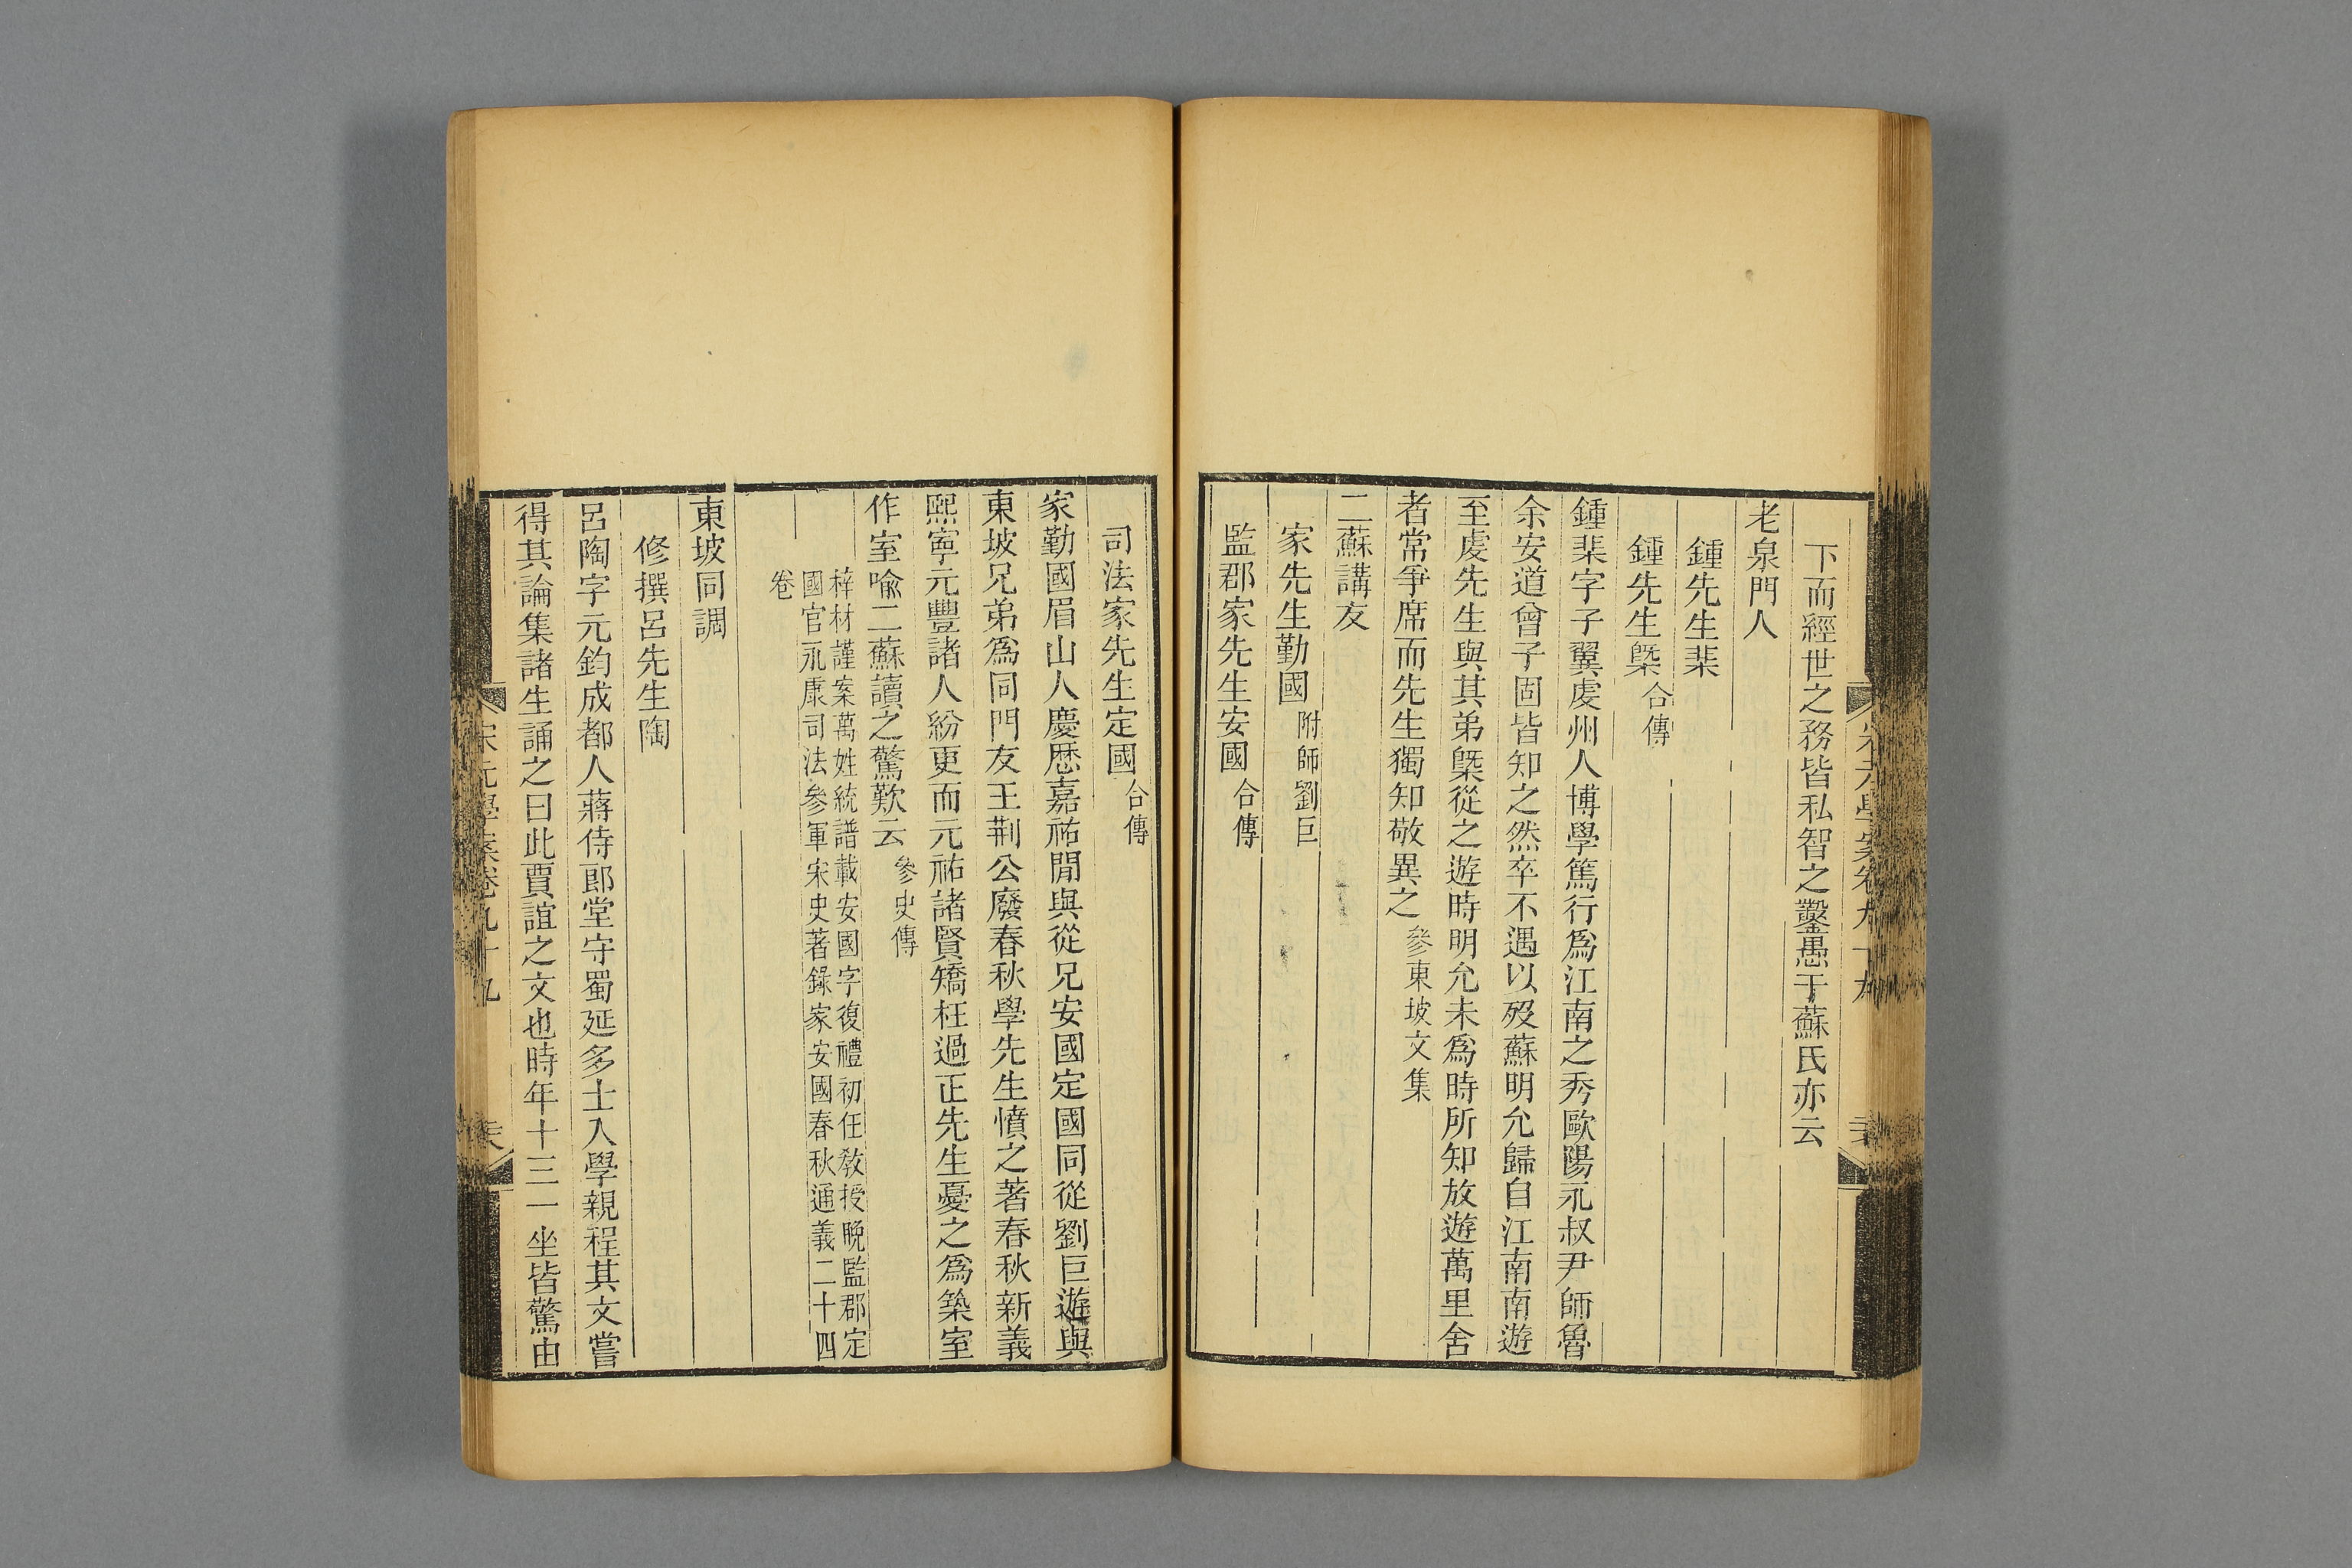 下而經世之務皆私智之鑿愚于蘇氏亦云
老泉門人
鍾先生棐
鍾先生槩合傳
鍾棐字子翼虔州人博學篤行爲江南之秀歐陽永叔尹師魯
余安道曾子固皆知之然卒不遇以歿蘇明允歸自江南南遊
至虔先生與其弟槩從之遊時明允未爲時所知放遊萬里舍
者常爭席而先生獨知敬異之參東坡文集
二蘇講友
家先生勤國附師劉巨
監郡家先生安國合傳
司法家先生定國合傳
家勤國眉山人慶歷嘉祐閒與從兄安國定國同從劉巨遊與
東坡兄弟爲同門友王荆公廢春秋學先生憤之著春秋新義
熙寧元豐諸人紛更而元祐諸賢矯枉過正先生憂之爲築室
作室喻二蘇讀之驚歎云參史傳
梓材謹案萬姓統譜載安國字復禮初任敎授晚監郡定
國官永康司法參軍宋史著錄家安國春秋通義二十四
卷
東坡同調
修撰呂先生陶
呂陶字元鈞成都人蔣侍郎堂守蜀延多士入學親程其文嘗
得其論集諸生誦之曰此賈誼之文也時年十三一坐皆驚由
宋元學案卷九十九